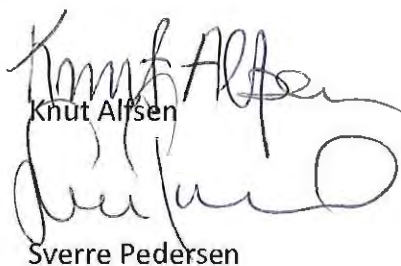 Knut Alfsen
Knut Alfsen
Sverre Pedersen